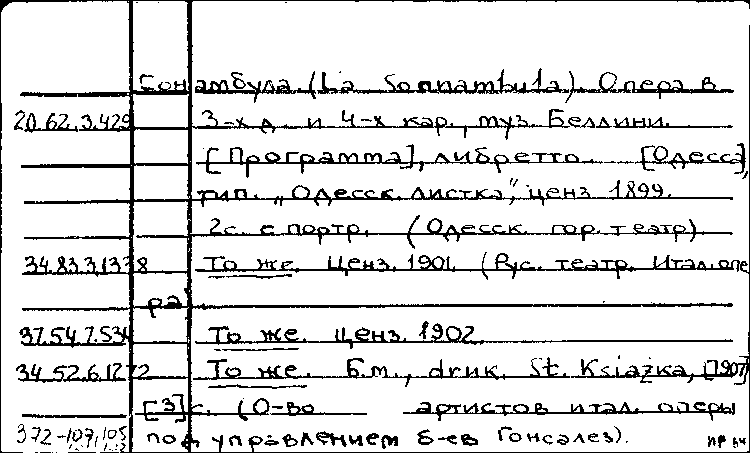 Сонамбула (La Sonnambula). Опера в
20.62.3.429 3-х д. и 4-х кар., муз. Беллини.
[Программа], либретто. [Одесса],
тип. „Одесск. листка”, ценз. 1899.
2с. с портр. (Одесск. гор. театр).
34.83.3.1338 То же. Ценз. 1901. (Рус. театр. Итал. опе
ра)
37.54.7.534 То же. Ценз. 1902.
34.52.6.1272 То же. Б.м., druk. St. Książka, [1907]
[3]с. (О-во артистов итал. оперы
372-107,105 под управлением б-ев Гонсалез).